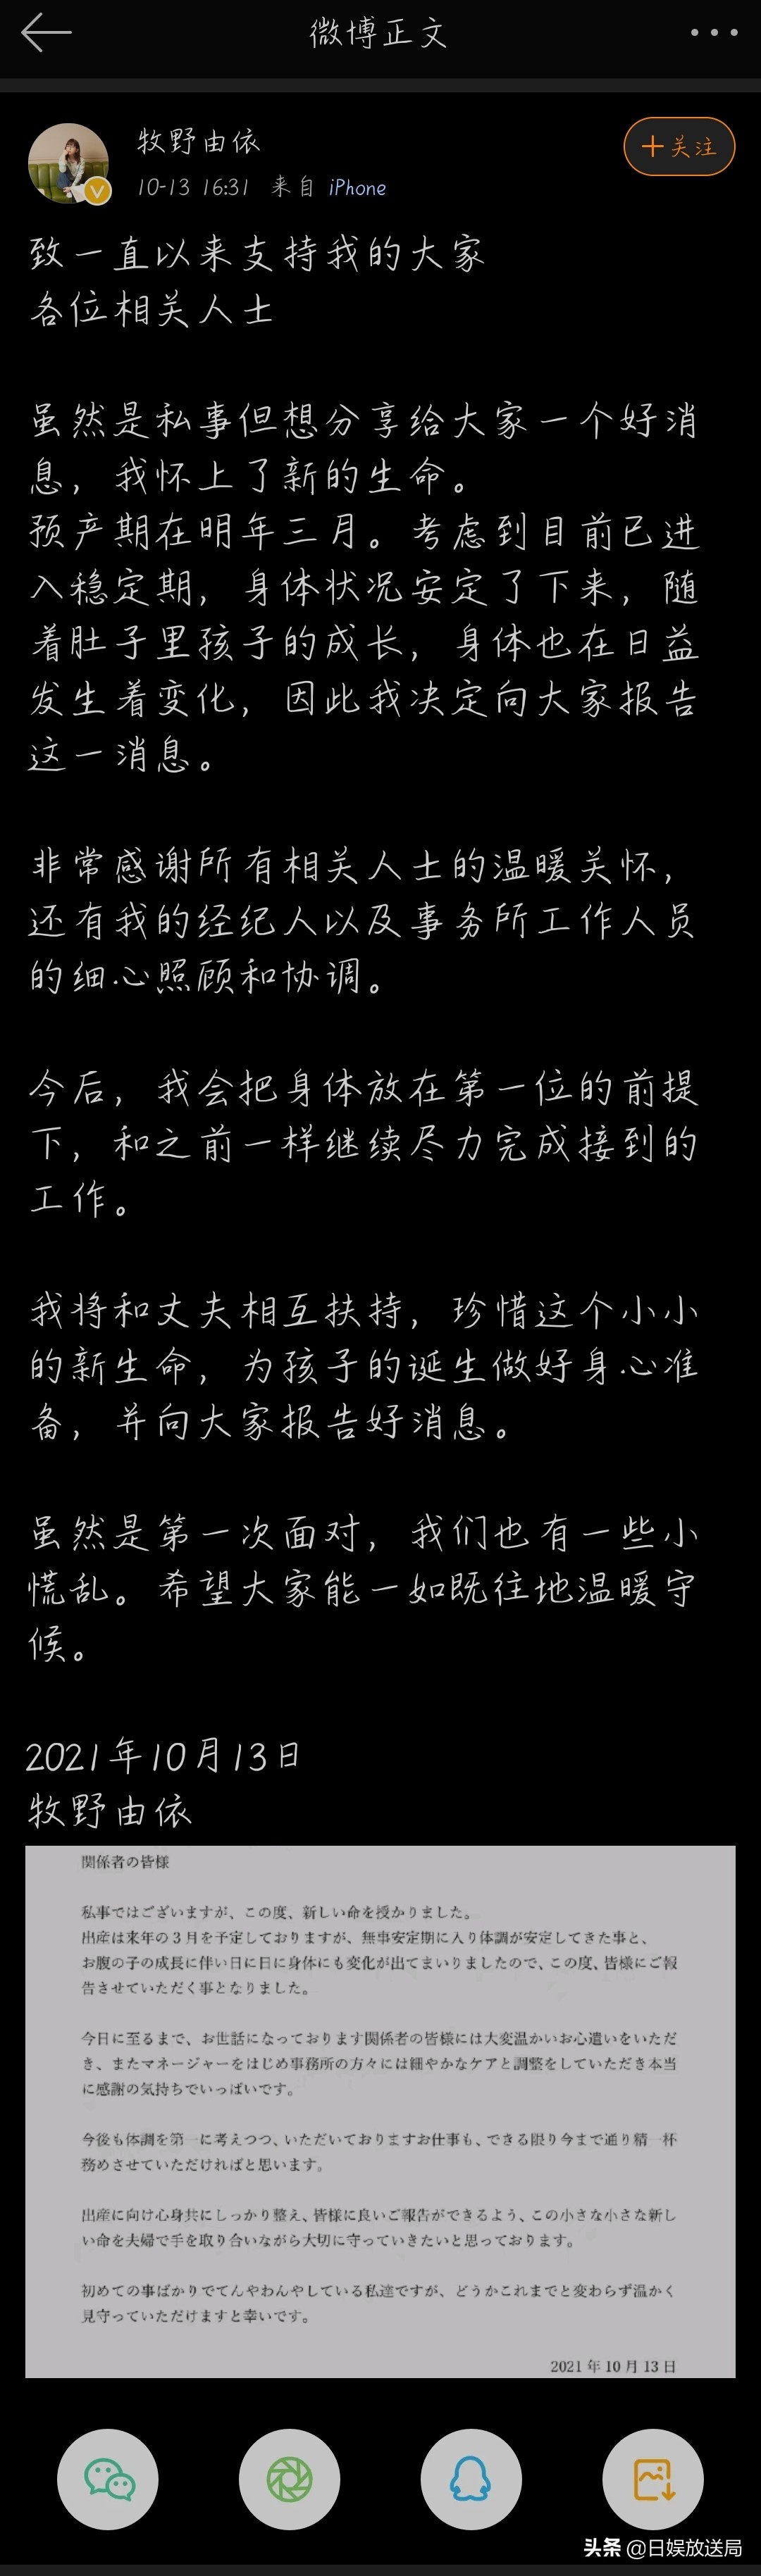 微博正文
牧野由依
10-13 16:31 来自 iPhone
关注
致一直以来支持我的大家
各位相关人士
虽然是私事但想分享给大家一个好消
息，我怀上了新的生命。
预产期在明年三月。考虑到目前已进
入稳定期，身体状况安定了下来，随
着肚子里孩子的成长，身体也在日益
发生着变化，因此我决定向大家报告
这一消息。
非常感谢所有相关人士的温暖关怀，
还有我的经纪人以及事务所工作人员
的细心照顾和协调。
今后，我会把身体放在第一位的前提
下，和之前一样继续尽力完成接到的
工作。
我将和丈夫相互扶持，珍惜这个小小
的新生命，为孩子的诞生做好身心准
备，并向大家报告好消息。
虽然是第一次面对，我们也有一些小
慌乱。希望大家能一如既往地温暖守
候。
2021年10月13日
牧野由依
関係者の皆様
私事ではございますが、この度、新しい命を授かりました。
出産は来年の3月を予定しておりますが、無事安定期に入り体調が安定してきた事と、
お腹の子の成長に伴い日に日に身体にも変化が出てまいりましたので、この度、皆様にご報
告させていただく事となりました。
今日に至るまで、お世話になっております関係者の皆様には大変温かいお心遣いをいただ
き、またマネージャーをはじめ事務所の方々には細やかなケアと調整をしていただき本当
に感謝の気持ちでいっぱいです。
今後も体調を第一に考えつつ、いただいておりますお仕事も、できる限り今まで通り精一杯
務めさせていただければと思います。
出産に向け心身共にしっかり整え、皆様に良いご報告ができるよう、この小さな小さな新し
い命を夫婦で手を取り合いながら大切に守っていきたいと思っております。
初めての事ばかりでてんやわんやしている私達ですが、どうかこれまでと変わらず温かく
見守っていただけますと幸いです。
2021 年 10 月 13 日
头条 @日娱放送局